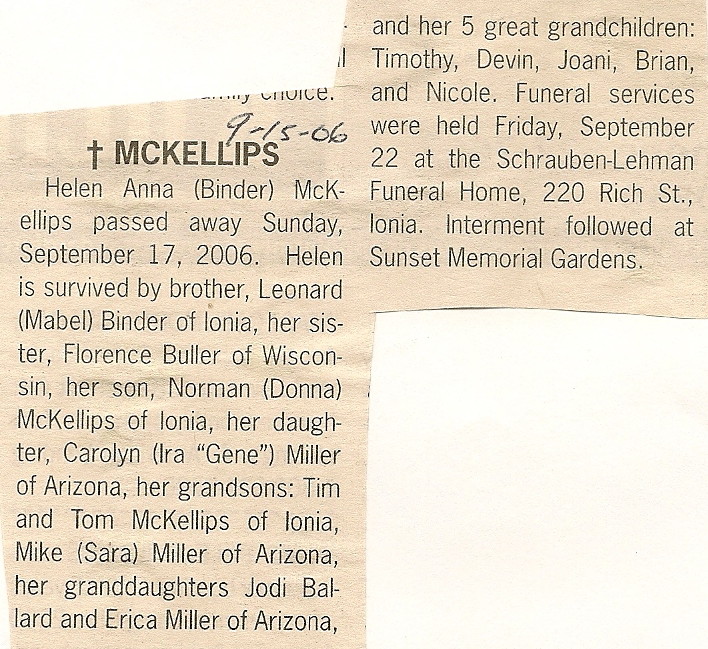 family choice.
9-15-06
† MCKELLIPS
Helen Anna (Binder) McK-
ellips passed away Sunday,
September 17, 2006. Helen
is survived by brother, Leonard
(Mabel) Binder of Ionia, her sis-
ter, Florence Buller of Wiscon-
sin, her son, Norman (Donna)
McKellips of Ionia, her daugh-
ter, Carolyn (Ira “Gene”) Miller
of Arizona, her grandsons: Tim
and Tom McKellips of Ionia,
Mike (Sara) Miller of Arizona,
her granddaughters Jodi Bal-
lard and Erica Miller of Arizona,
and her 5 great grandchildren:
Timothy, Devin, Joani, Brian,
and Nicole. Funeral services
were held Friday, September
22 at the Schrauben-Lehman
Funeral Home, 220 Rich St.,
Ionia. Interment followed at
Sunset Memorial Gardens.